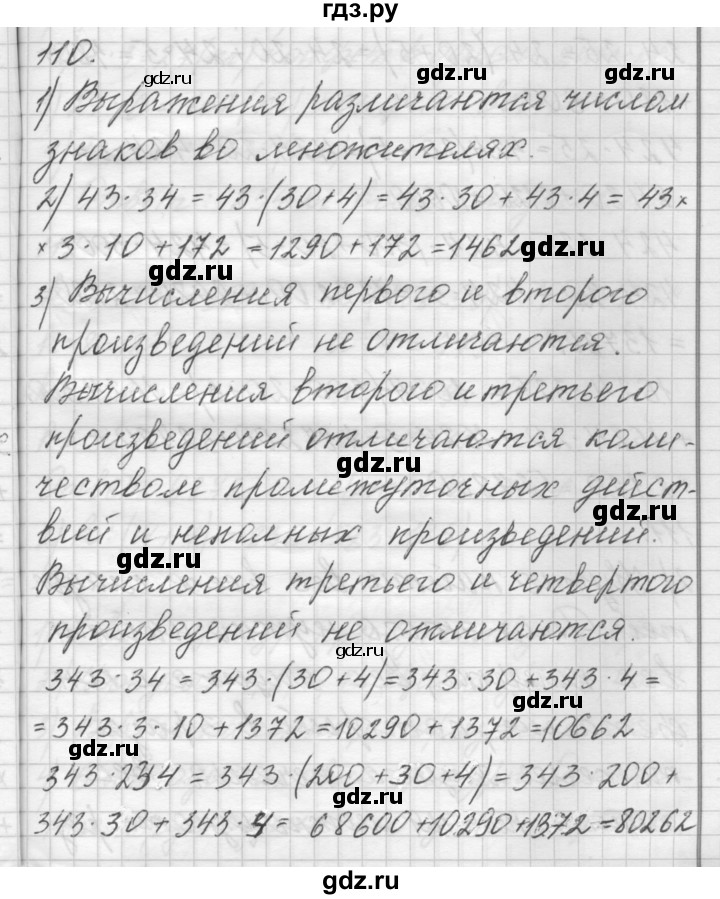 гдз.ру
110.
gdz.ru gdz.ru gdz.ru
1) Выражения различаются числом
знаков во множителях.
2) 43·34 = 43·(30+4) = 43·30 + 43·4 = 43×
× 3·10 + 172 = 1290 + 172 = 1462
gdz.ru gdz.ru
3) Вычисления первого и второго
произведений не отличаются.
gdz.ru
Вычисления второго и третьего
произведений отличаются коли-
gdz.ru
чеством промежуточных дейст-
gdz.ru
вий и неполных произведений.
gdz.ru
Вычисления третьего и четвертого
произведений не отличаются.
gdz.ru
343·34 = 343·(30+4) = 343·30 + 343·4 =
gdz.ru
= 343·3·10 + 1372 = 10290 + 1372 = 10662
gdz.ru
343·234 = 343·(200 + 30 + 4) = 343·200 +
gdz.ru
343·30 + 343·4 = 68600 + 10290 + 1372 = 80262
gdz.ru